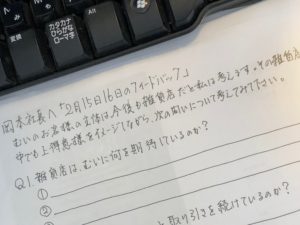 変換
カタカナ
ひらがな
ローマ字
Alt
岡本社長へ「2月15日16日のフィードバック」
むいのお客様の主体は今後も雑貨店だと私は考えます。その雑貨店
中でも上得意様をイメージしながら、次の問いについて考えてみて下さい。
Q1. 雑貨店は、むいに何を期待しているのか?
①
②
③
と取り引きを続けているのか?